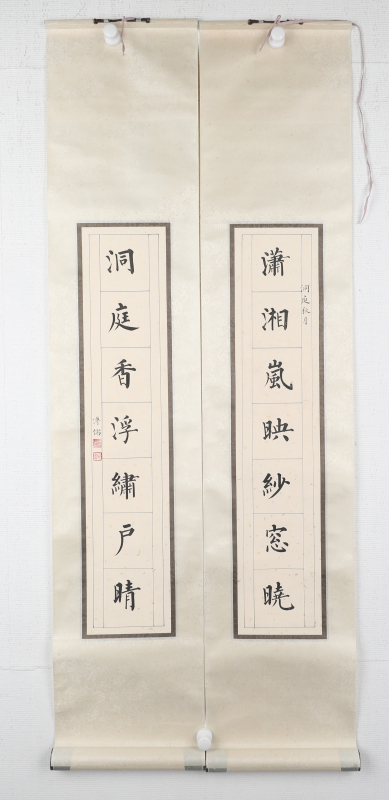 洞庭秋月
瀟湘嵐映紗窓曉
洞庭香浮繡戶晴